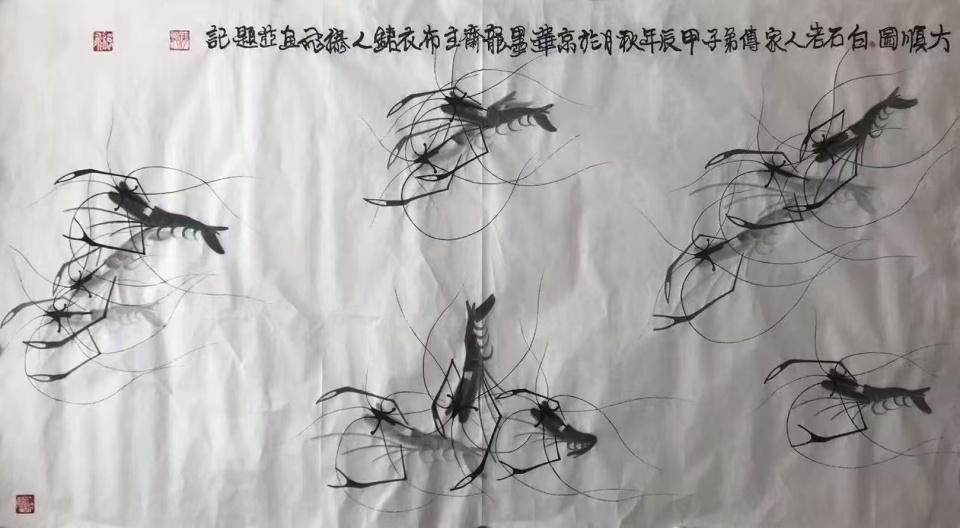 大順圖白石老人家傳弟子甲辰年秋月於京華墨龍齋主布衣鏽人楊飛画並題記